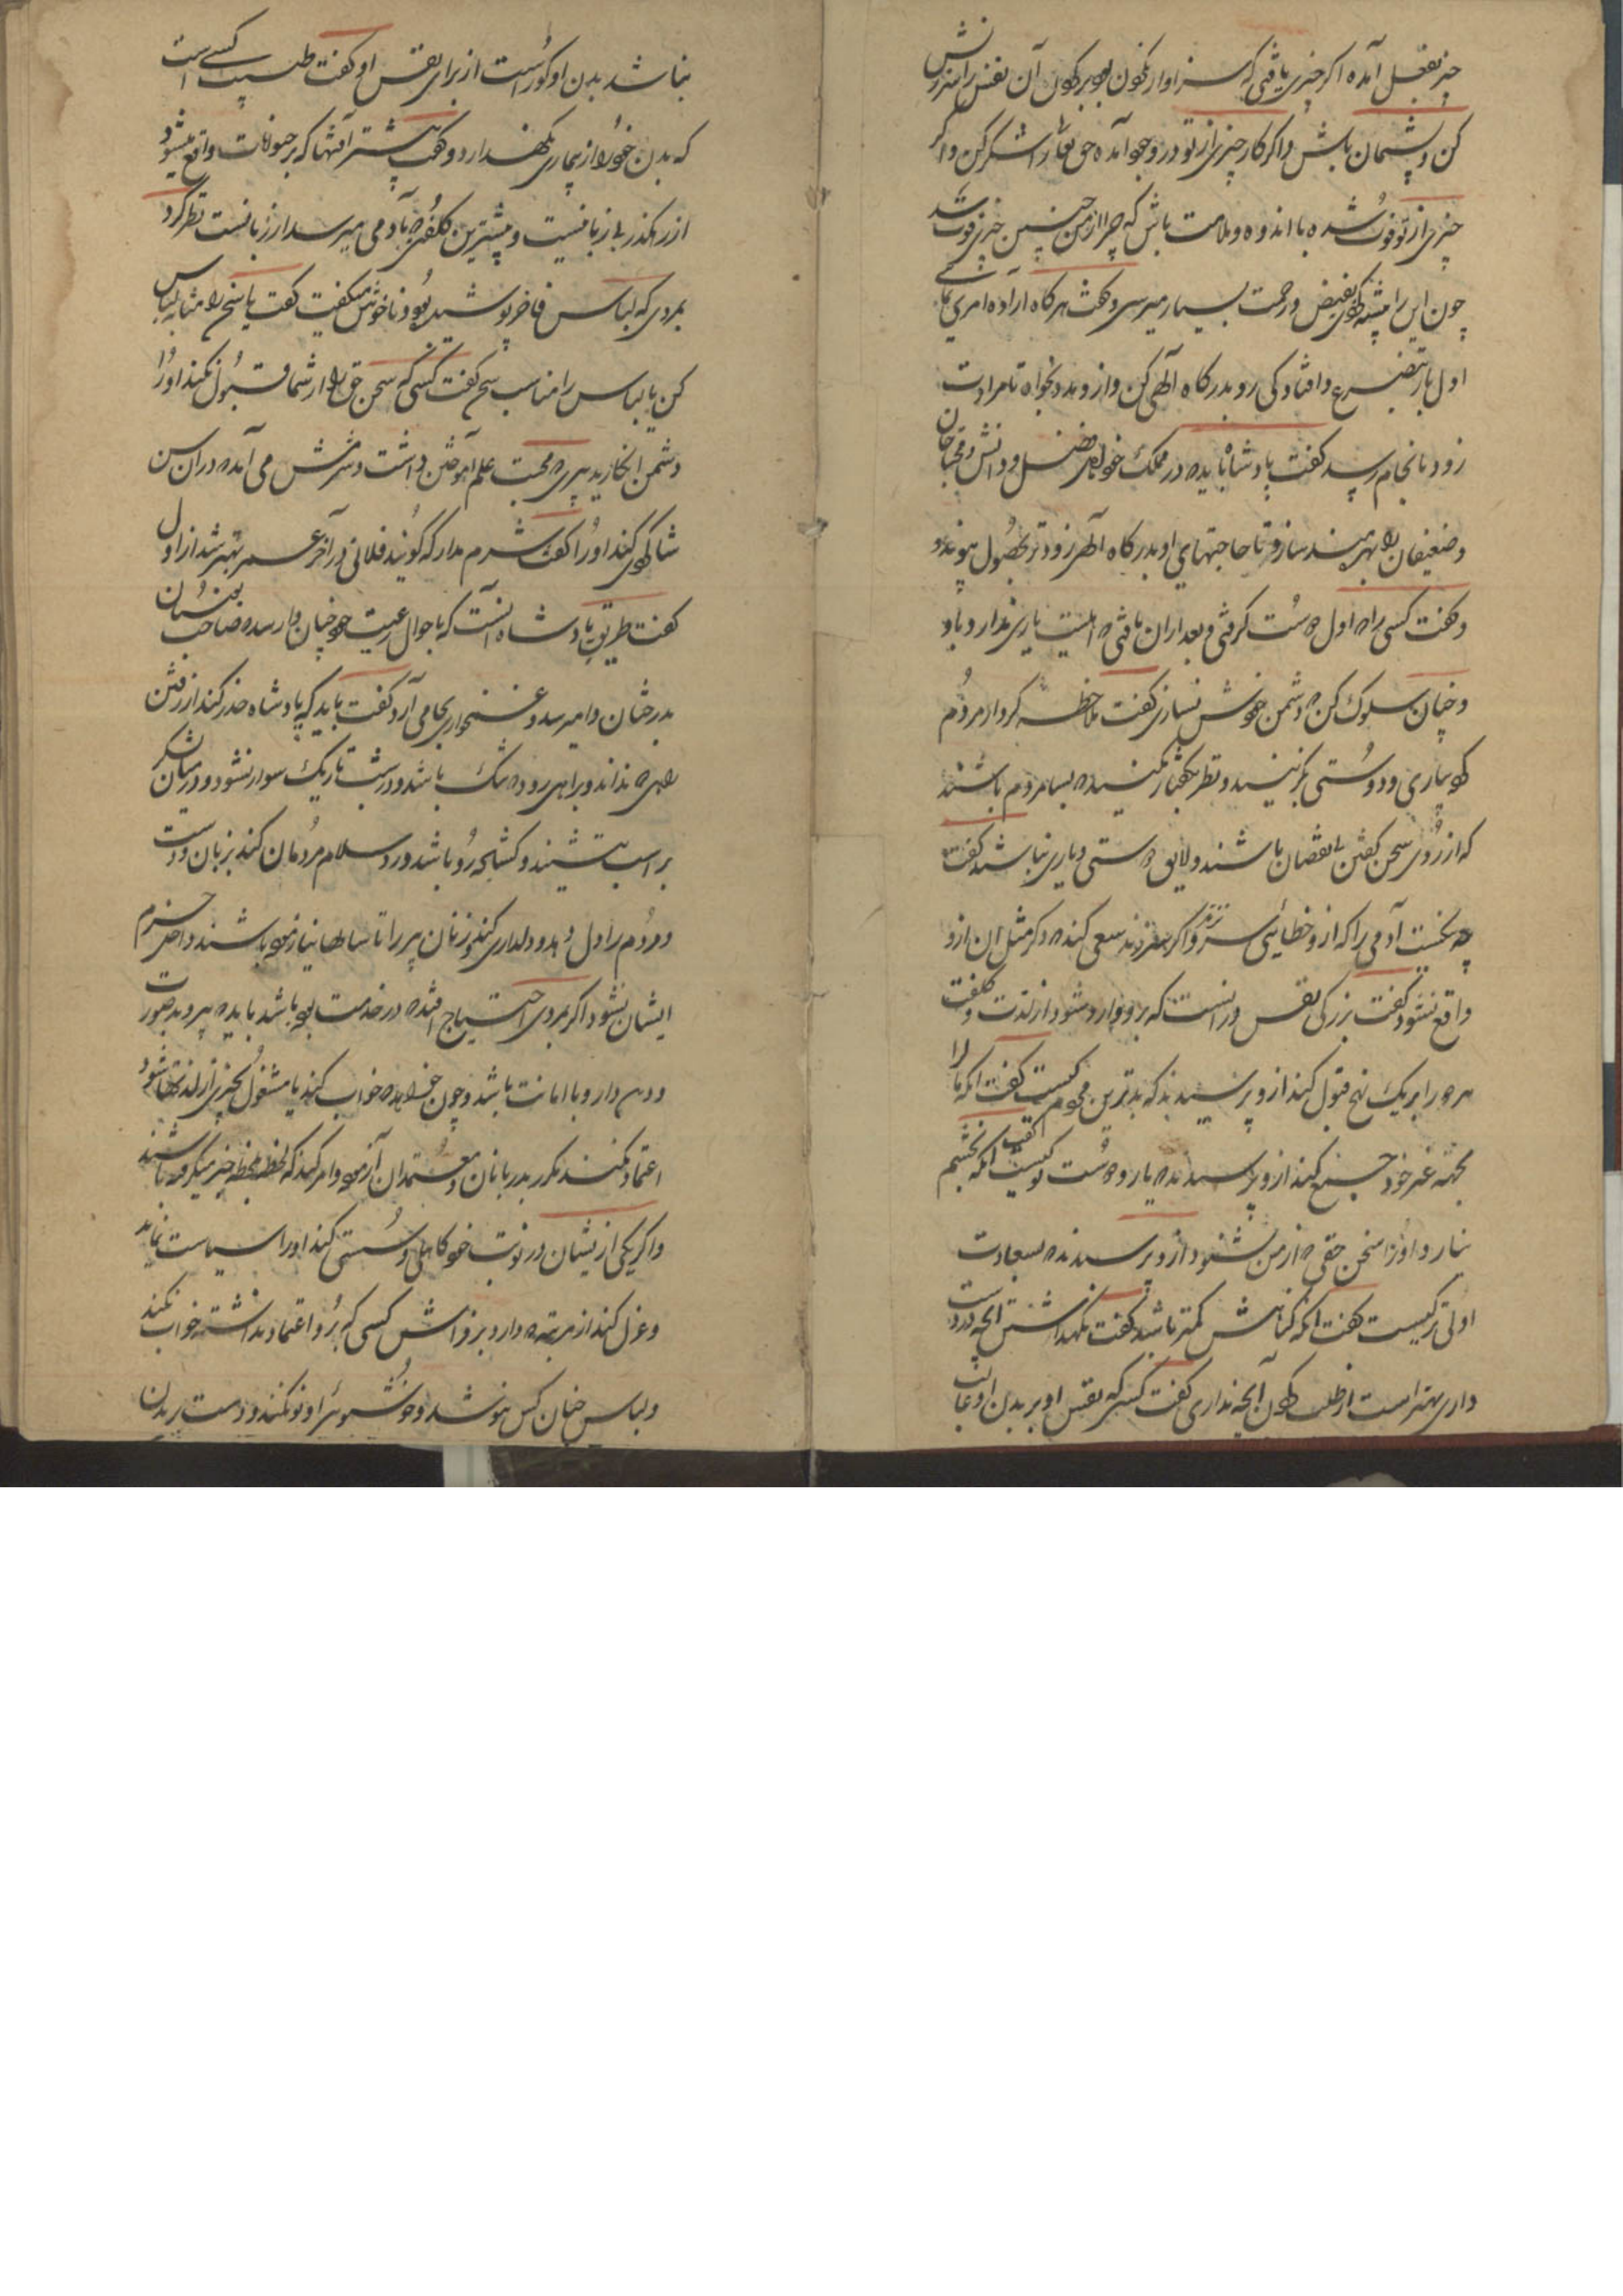 چیز بفعل آمده اگر چیزی یافتی که سزاوار نکون بود بر کون آن نفس را سرزنش
کن و پشیمان باش و اگر کار چیزی از تو در وجود آمده حق تعالی را شکر کن و اگر
چیزی از تو فوت شده با اندوه و ملامت باش که چرا از من چنین چیزی فوت شد
چون این را پیشه کنی بفیض و رحمت بسیار میرسی و گفت هرگاه اراده امری نمائی
اول بار بتضرع و افتادگی رو بدرگاه الهی کن و از و مدد بخواه تا مرادت
زود بانجام رسد گفت پادشاه باید که در مملکت خود اهل فضل و دانش و محتاجان
و ضعیفان را بهره مند سازد تا حاجتهای او بدرگاه الهی زودتر بحصول پیوندد
و گفت کسی را که اول دوست گرفتی و بعد از آن یافتی که اهلیت یاری ندارد با او
چنان سلوک کن که دشمن خویش نسازی گفت ملاحظه کردار مردم
کنید و یاری و دوستی برگزینید و نظر بگفتار نکنید که بسا مردم باشند
که از روی سخن گفتن بی نقصان باشند و لایق دوستی و یاری نباشند گفت
چه نیکبخت آدمی را که از و خطائی سر نزند و اگر سرزند سعی کند که دگر مثل آن ازو
واقع نشود گفت بزرگی نفس در آنست که برو وارد شود از لذت و کلفت
هر دو را بر یک نهج قبول کند از و پرسیدند که بدترین مردم کیست گفت آنکه مال را
بجهة غیر خود جمع کند از و پرسیدند که یار و دوست تو کیست گفت آنکه بخشم
نیارد او را سخن حقی که از من شنود از و پرسیدند که بسعادت
اولی تر کیست گفت آنکه گناهش کمتر باشد گفت نگهداشتن آنچه در دست
داری بهتر است از طلب کردن آنچه نداری گفت کسی که نفس او بر بدن او غالب
نباشد بدن او گور است از برای نفس او گفت طبیب کسی است
که بدن خود را از بیماری نگهدارد و گفت بیشتر آفتها که بر حیوانات واقع میشود
از رهگذر بی زبانیست و بیشترین کلفتی که بآدمی میرسد از زبانست نظر کرد
بمردی که لباس فاخر پوشیده بود و ناخوش میگفت گفت یا سخن را مشابه لباس
کن یا لباس را مناسب سخن گفت کسی که سخن حق را از شما قبول نکند او را
دشمن انگارید پیری محبت علم آموختن داشت و شرمش می آمد که در آن سن
شاگردی کند او را گفت شرم مدار که گویند فلانی در آخر عمر بهتر شد از اول
گفت طریق پادشاه آنست که باحوال رعیت خود چنان وارسد که صاحب بستان
بدرختان وامیرسد و غمخواری بجا می آرد گفت باید که پادشاه حذر کند از رفتن
راهی که نداند و براهی رود که تنگ باشد و در شب تاریک سوار نشود و در میان لشکر
بر اسب نشیند و گشاده رو باشد و رد سلام مردمان کند بزبان و دست
و مردم را دل دهد و دلداری کند و زنان پیر را تا سالها نیازموده باشند داخل حرم
ایشان نشود اگر بمردی احتیاج افتد که در خدمت بوده باشد باید که پیر و بدصورت
و دین دار و با امانت باشد و چون خواهد که خواب کند یا مشغول بچیزی از لذتها شود
اعتماد نکند مگر بدربانان و معتمدان آزموده و امر کند که لحظه بلحظه خبر میگرفته باشند
و اگر یکی از ایشان در نوبت خود کاهلی و سستی کند او را سیاست نماید
و عزل کند از مرتبه که دارد بر فراش کسی که برو اعتماد نداشته خواب نکند
و لباس چنان کس نپوشد و خوشبوئی او بو نکند و دست